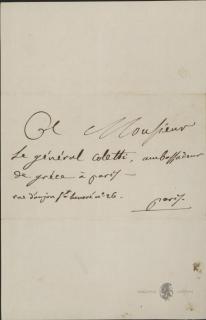 A Monsieur
Le général Coletti, ambassadeur
de grèce à paris —
rue d'anjou St. honoré nº 26.
paris.